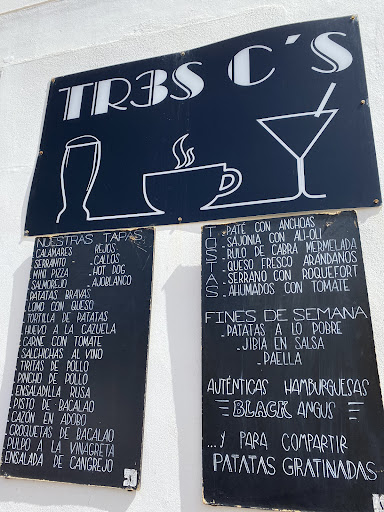 TR3S C´S
NUESTRAS TAPAS
CALAMARES REJOS
SERRANITO - CALLOS
MINI PIZZA - HOT DOG
SALMOREJO - AJOBLANCO
PATATAS BRAVAS
LOMO CON QUESO
TORTILLA DE PATATAS
HUEVO A LA CAZUELA
CARNE CON TOMATE
SALCHICHAS AL VINO
TIRITAS DE POLLO
PINCHO DE POLLO
ENSALADILLA RUSA
PISTO DE BACALAO
CAZON EN ADOBO
CROQUETAS DE BACALAO
PULPO A LA VINAGRETA
ENSALADA DE CANGREJO
- PATÉ CON ANCHOAS
- SAJONIA CON ALI-OLI
- RULO DE CABRA MERMELADA
- QUESO FRESCO ARANDANOS
- SERRANO CON ROQUEFORT
- AHUMADOS CON TOMATE
FINES DE SEMANA
- PATATAS A LO POBRE
- JIBIA EN SALSA
- PAELLA
AUTÉNTICAS HAMBURGUESAS
BLACK ANGUS
...Y PARA COMPARTIR
PATATAS GRATINADAS